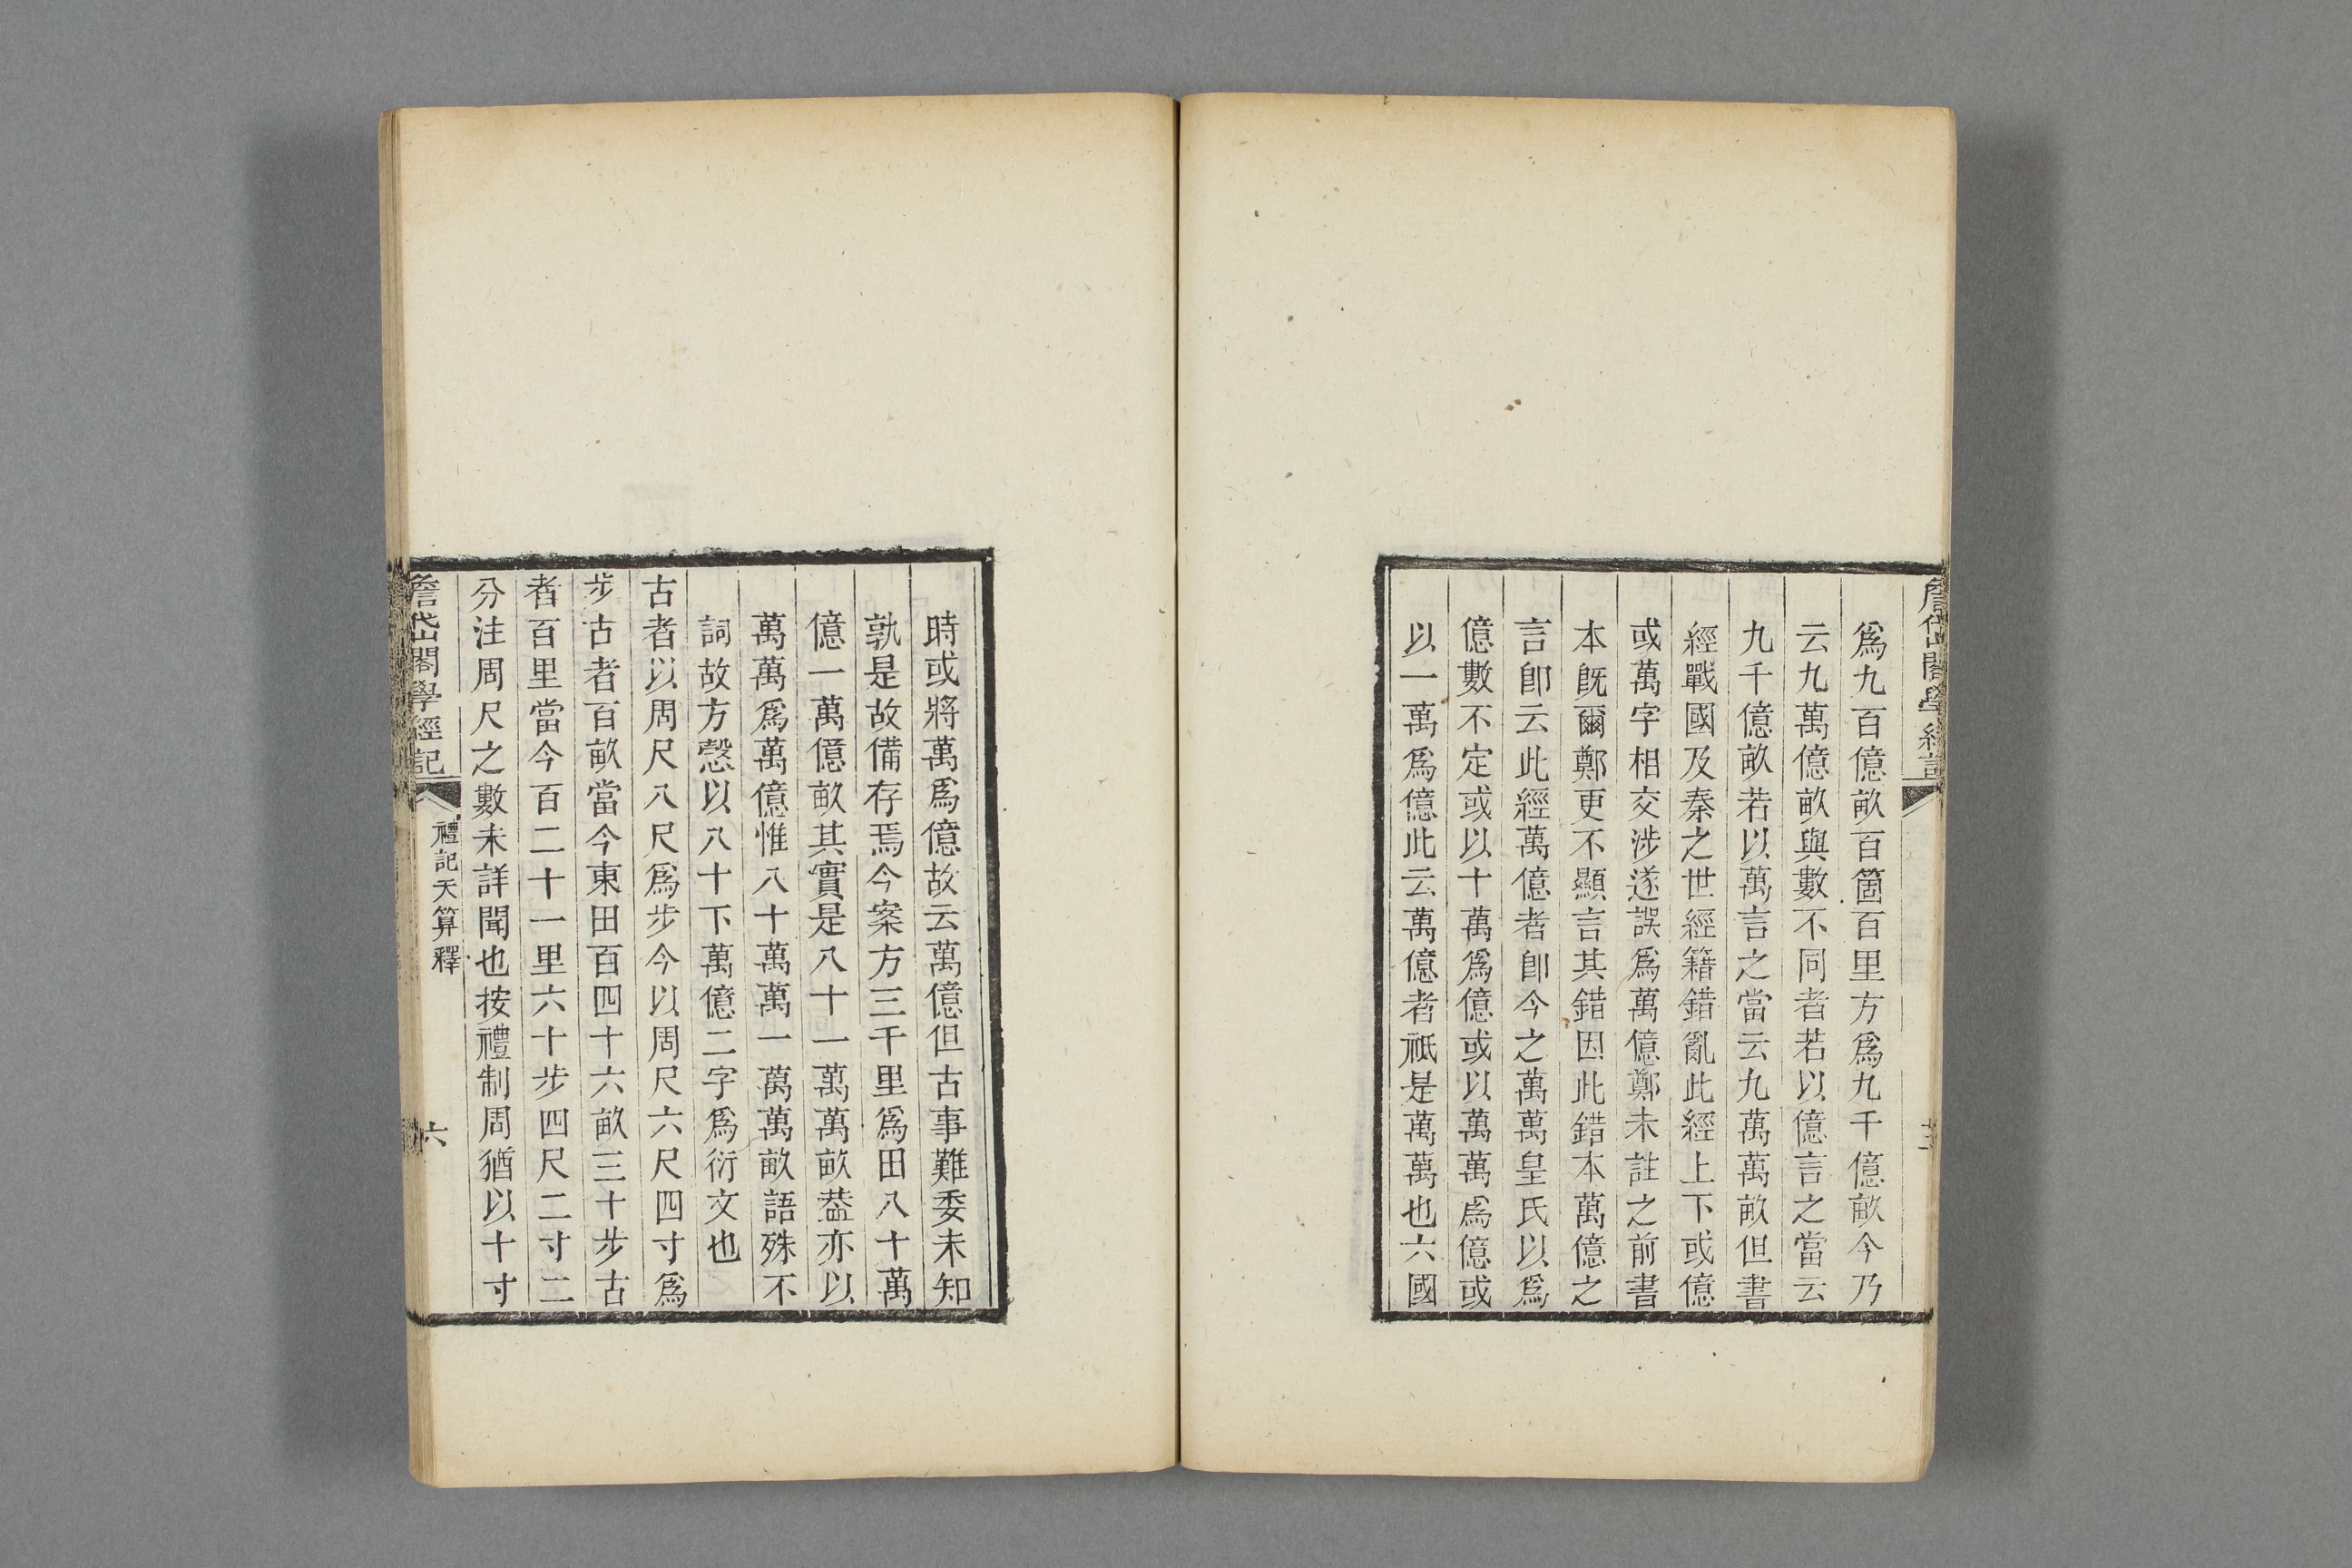 爲九百億畝百箇百里方爲九千億畝今乃
云九萬億畝與數不同者若以億言之當云
九千億畝若以萬言之當云九萬萬畝但書
經戰國及秦之世經籍錯亂此經上下或億
或萬字相交涉遂誤爲萬億鄭未註之前書
本既爾鄭更不顯言其錯因此錯本萬億之
言卽云此經萬億者卽今之萬萬皇氏以爲
億數不定或以十萬爲億或以萬萬爲億或
以一萬爲億此云萬億者祗是萬萬也六國
時或將萬爲億故云萬億但古事難委未知
孰是故備存焉今案方三千里爲田八十萬
億一萬億畝其實是八十一萬萬畝葢亦以
萬萬爲萬億惟八十萬萬一萬萬畝語殊不
詞故方慤以八十下萬億二字爲衍文也
古者以周尺八尺爲步今以周尺六尺四寸爲
步古者百畝當今東田百四十六畝三十步古
者百里當今百二十一里六十步四尺二寸二
分注周尺之數未詳聞也按禮制周猶以十寸
詹岱閣學經記
禮記天算釋
六